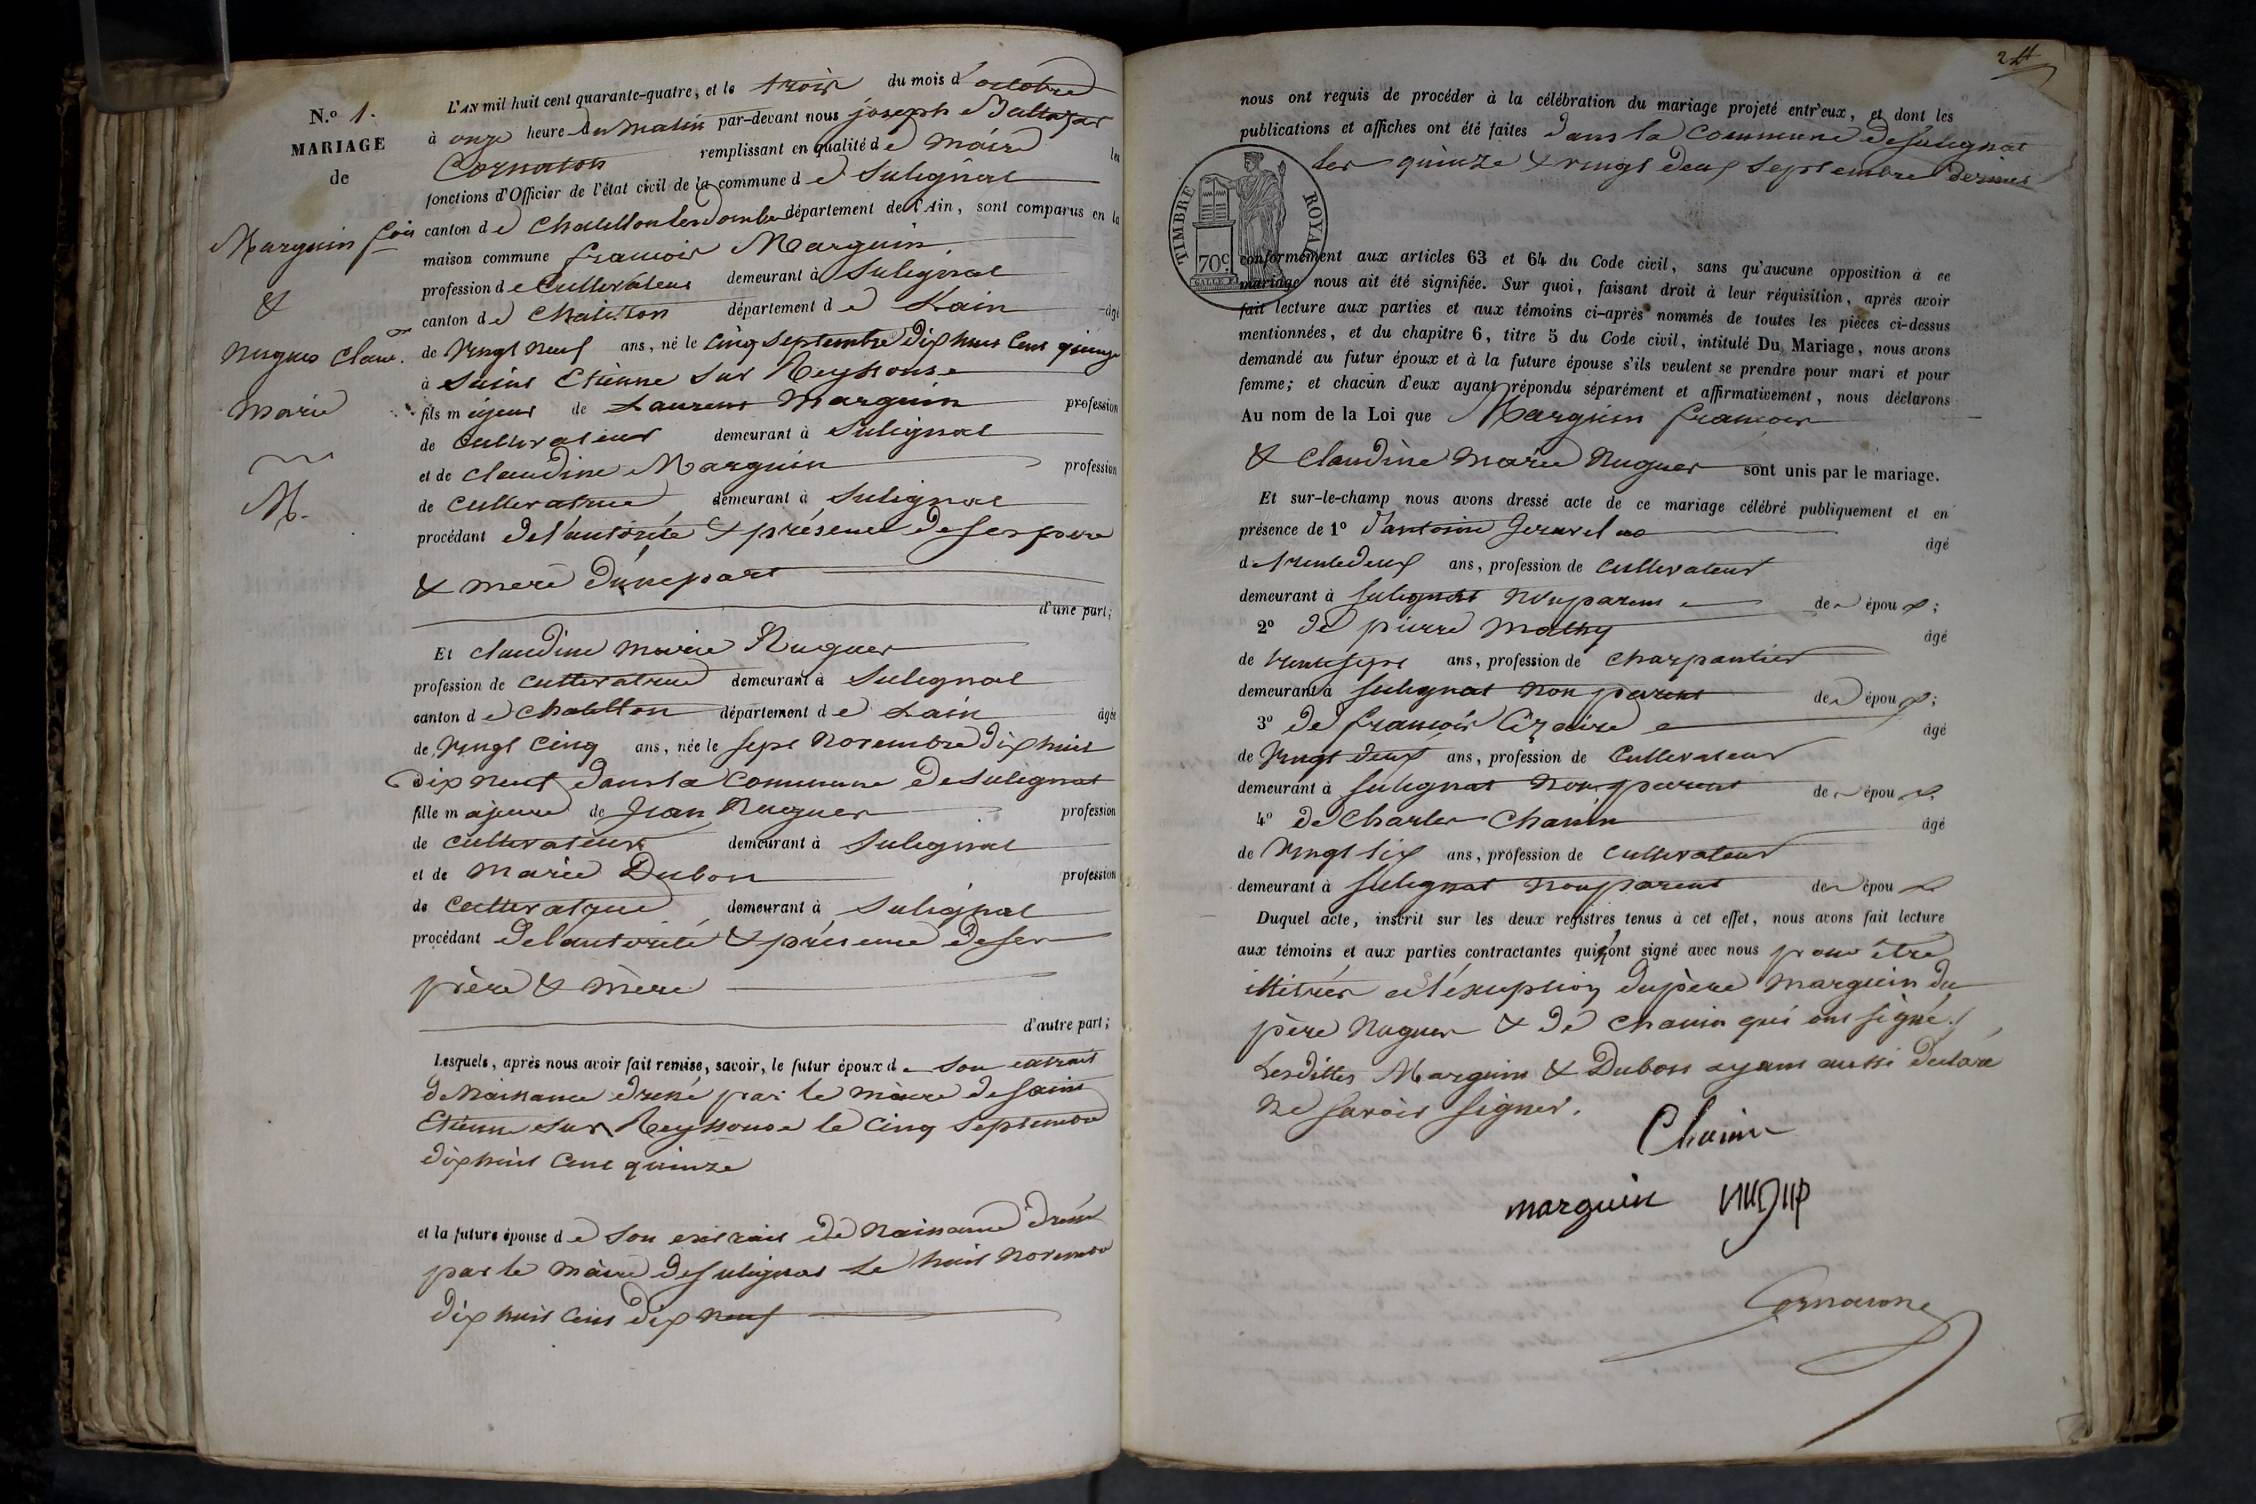 N.º 1.
MARIAGE
de
Marguin fois
&
Nugues Clau.
Marie
M.
L'AN mil huit cent quarante-quatre, et le trois du mois d'octobre
à onze heure du matin par-devant nous joseph Baltazar
Cornaton remplissant en qualité de Maire les
fonctions d'Officier de l'état civil de la commune de Sulignat
canton de Chatillon les Dombe département de l'Ain, sont comparus en la
maison commune francois Marguin
profession de Cultivateur demeurant à Sulignat
canton de Chatillon département de Lain âgé
de Vingt Neuf ans, né le Cinq Septembre dix huit Cent quinze
à Saint Etienne Sur Reyssouse
fils majeur de Laurent Marguin profession
de Cultivateur demeurant à Sulignat
et de Claudine Marguin profession
de Cultivatrice demeurant à Sulignat
procédant de l'autorité & présence de ses père
& mere d'une part
d'une part;
Et Claudine Marie Nugues
profession de Cultivatrice demeurant à Sulignat
canton de Chatillon département de Lain âgée
de Vingt Cinq ans, née le Sept Novembre dix huit
dix Neuf dans la Commune de Sulignat
fille majeure de Jean Nugues profession
de Cultivateur demeurant à Sulignat
et de Marie Dubon profession
de Cultivatrice demeurant à Sulignat
procédant de l'autorité & présence de ses
père & mère
d'autre part;
Lesquels, après nous avoir fait remise, savoir, le futur époux de Son extrait
de Naissance dressé par le Maire de Saint
Etienne Sur Reyssouse le Cinq Septembre
dix huit Cent quinze
et la future épouse de Son extrait de Naissance dressé
par le Maire de Sulignat le huit Novembre
dix huit Cent dix Neuf
24
nous ont requis de procéder à la célébration du mariage projeté entr'eux, et dont les
publications et affiches ont été faites dans la Commune de Sulignat
les quinze & vingt deux Septembre dernier
TIMBRE ROYAL
70c.
conformément aux articles 63 et 64 du Code civil, sans qu'aucune opposition à ce
mariage nous ait été signifiée. Sur quoi, faisant droit à leur réquisition, après avoir
fait lecture aux parties et aux témoins ci-après nommés de toutes les pièces ci-dessus
mentionnées, et du chapitre 6, titre 5 du Code civil, intitulé Du Mariage, nous avons
demandé au futur époux et à la future épouse s'ils veulent se prendre pour mari et pour
femme; et chacun d'eux ayant répondu séparément et affirmativement, nous déclarons
Au nom de la Loi que Marguin francois
& Claudine Marie Nugues sont unis par le mariage.
Et sur-le-champ nous avons dressé acte de ce mariage célébré publiquement et en
présence de 1º d'antoine âgé
de trente deux ans, profession de Cultivateur
demeurant à Sulignat Non parent de époux;
2º de pierre Mathy âgé
de trente Sept ans, profession de Charpantier
demeurant à Sulignat Non parent de époux;
3º de francois âgé
de Vingt deux ans, profession de Cultivateur
demeurant à Sulignat Non parent de époux
4º de Charles Chanin âgé
de Vingt Six ans, profession de Cultivateur
demeurant à Sulignat Non parent de époux
Duquel acte, inscrit sur les deux registres tenus à cet effet, nous avons fait lecture
aux témoins et aux parties contractantes qui n'ont signé avec nous pour être
illitrés à l'exception du père Marguin du
père Nugues & de Chanin qui ont signé
Lesdittes Marguin & Dubon ayant aussi déclaré
Ne Savoir Signer.
Chanin
marguin nugup
Cornatone